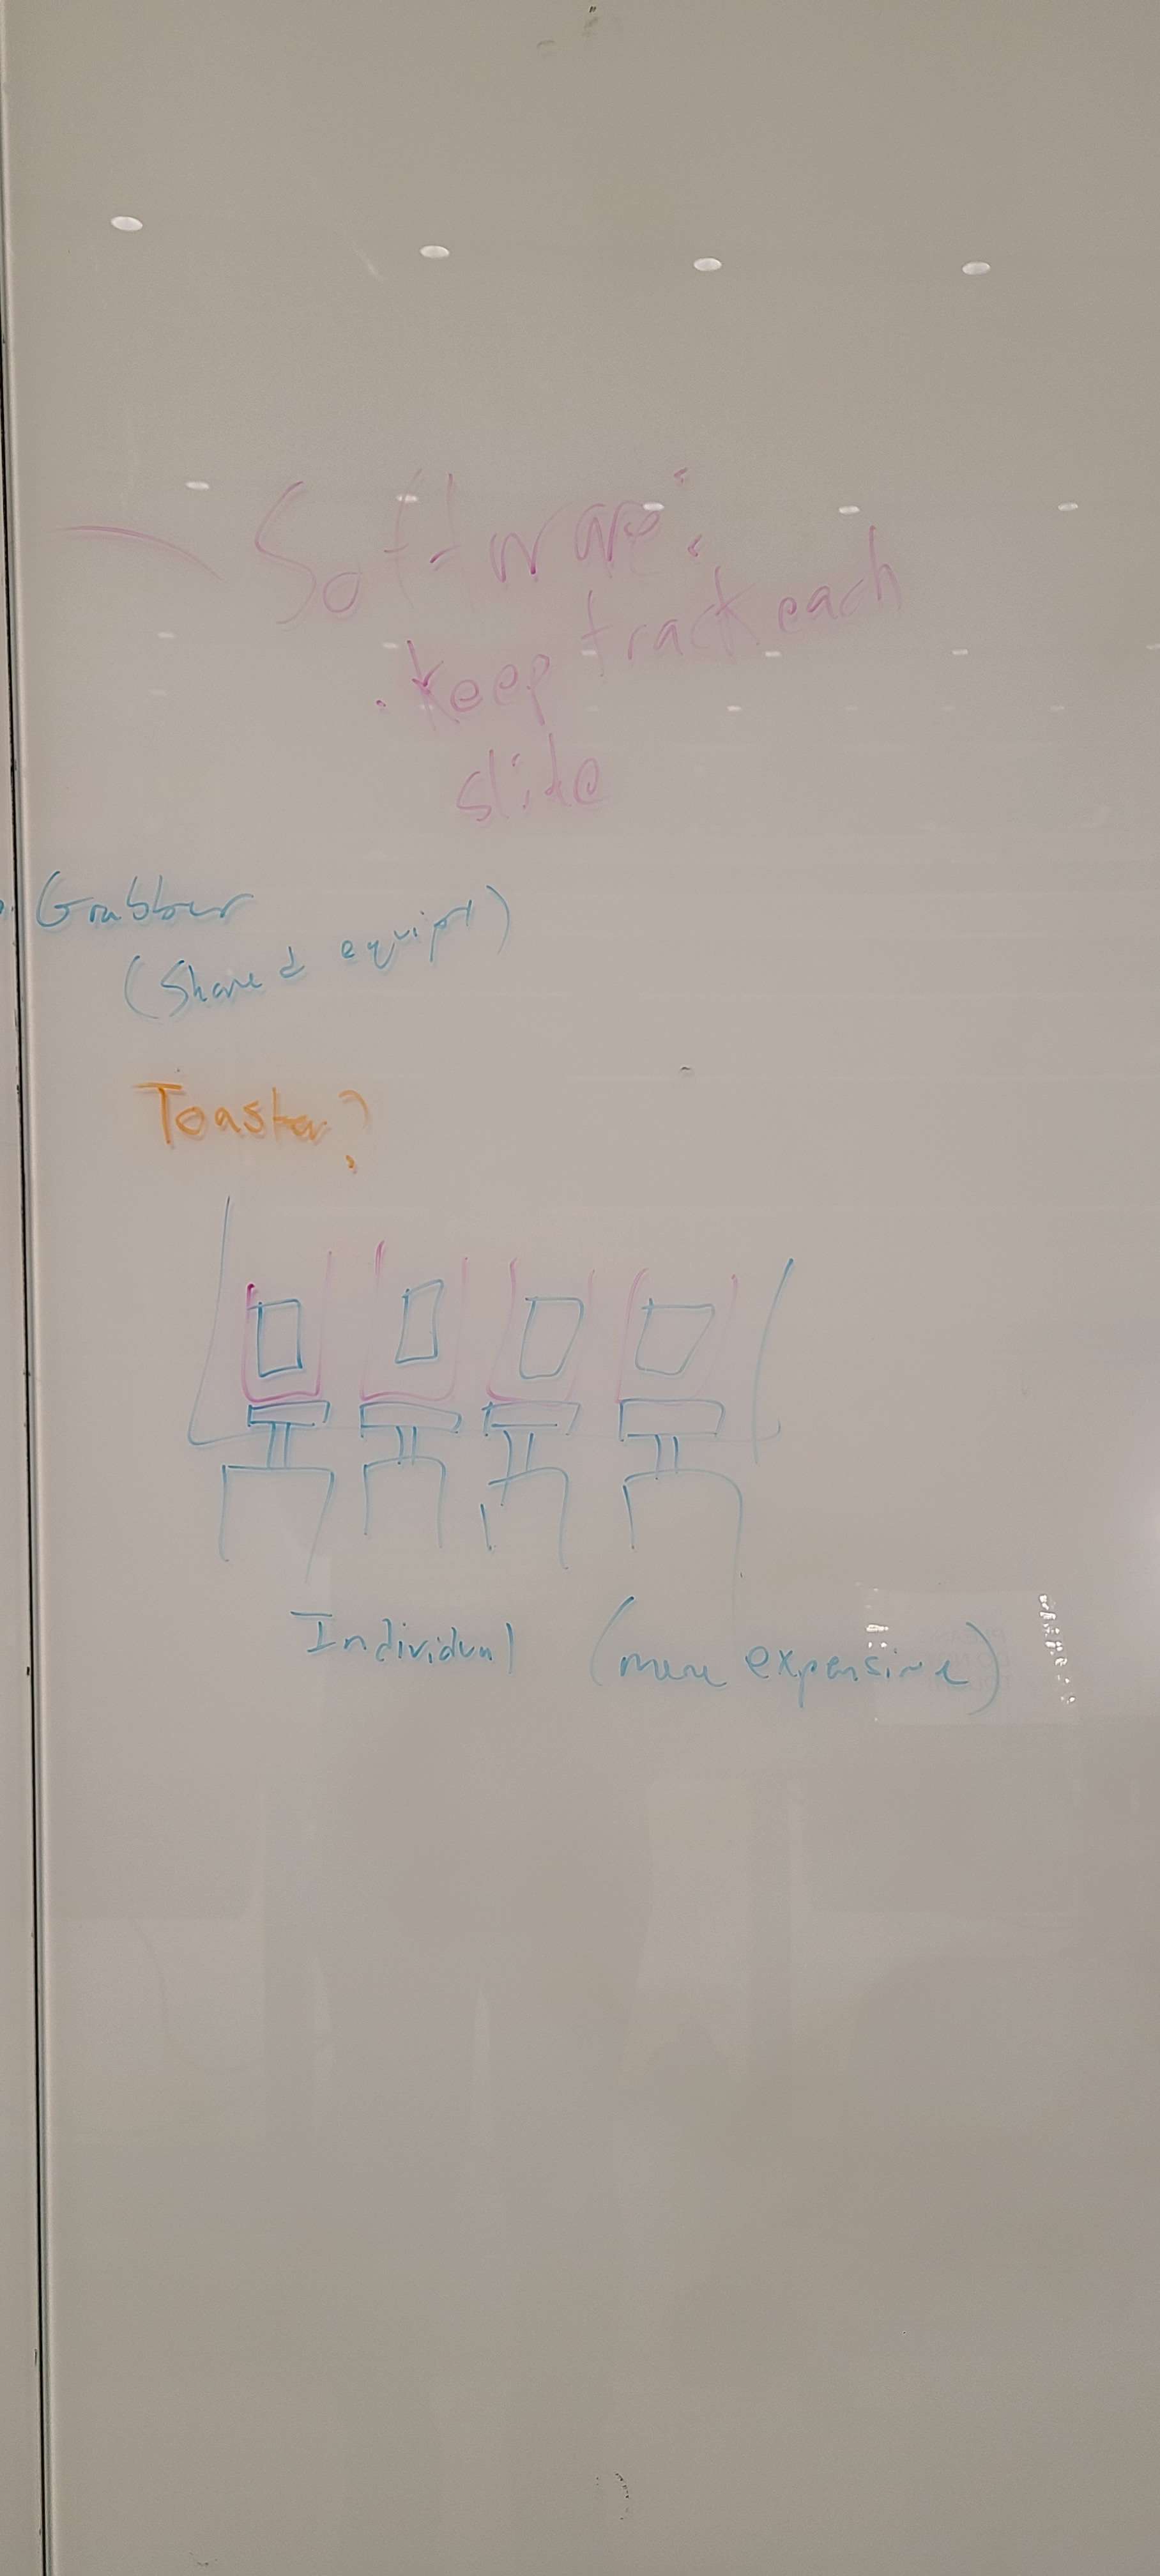 Software:
· keep track each
slide
· Grabber
(Shared equipt)
Toaster?
Individual (more expensive)